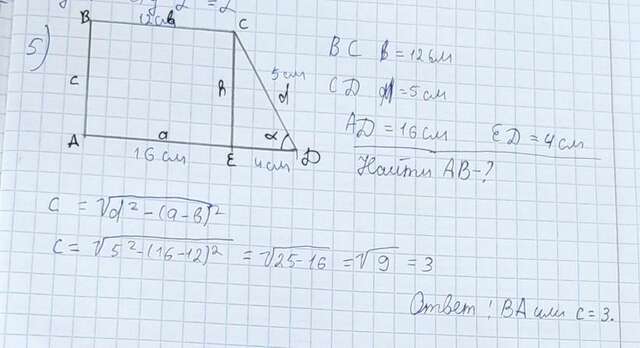 5)
B
12см
C
c
h
5 см
d
A
a
α
D
16 см
E
4см
BC в = 12см
CD d = 5 см
AD = 16 см ED = 4 см
Найти AB - ?
c = √d² - (a - в)²
c = √5² - (16 - 12)² = √25 - 16 = √9 = 3
Ответ: BA или c = 3.